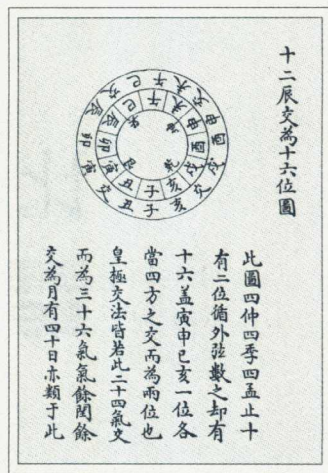 十二辰交為十六位圖
午未交申酉戌交亥子丑交寅卯辰交巳
午未申酉戌亥子丑寅卯辰巳
坤乾艮巽
此圖四仲四季四孟止十
有二位循外弦數之却有
十六蓋寅申巳亥一位各
當四方之交而為兩位也
皇極交法皆若此二十四氣交
而為三十六氣氣餘閏餘
交為月有四十日亦類于此